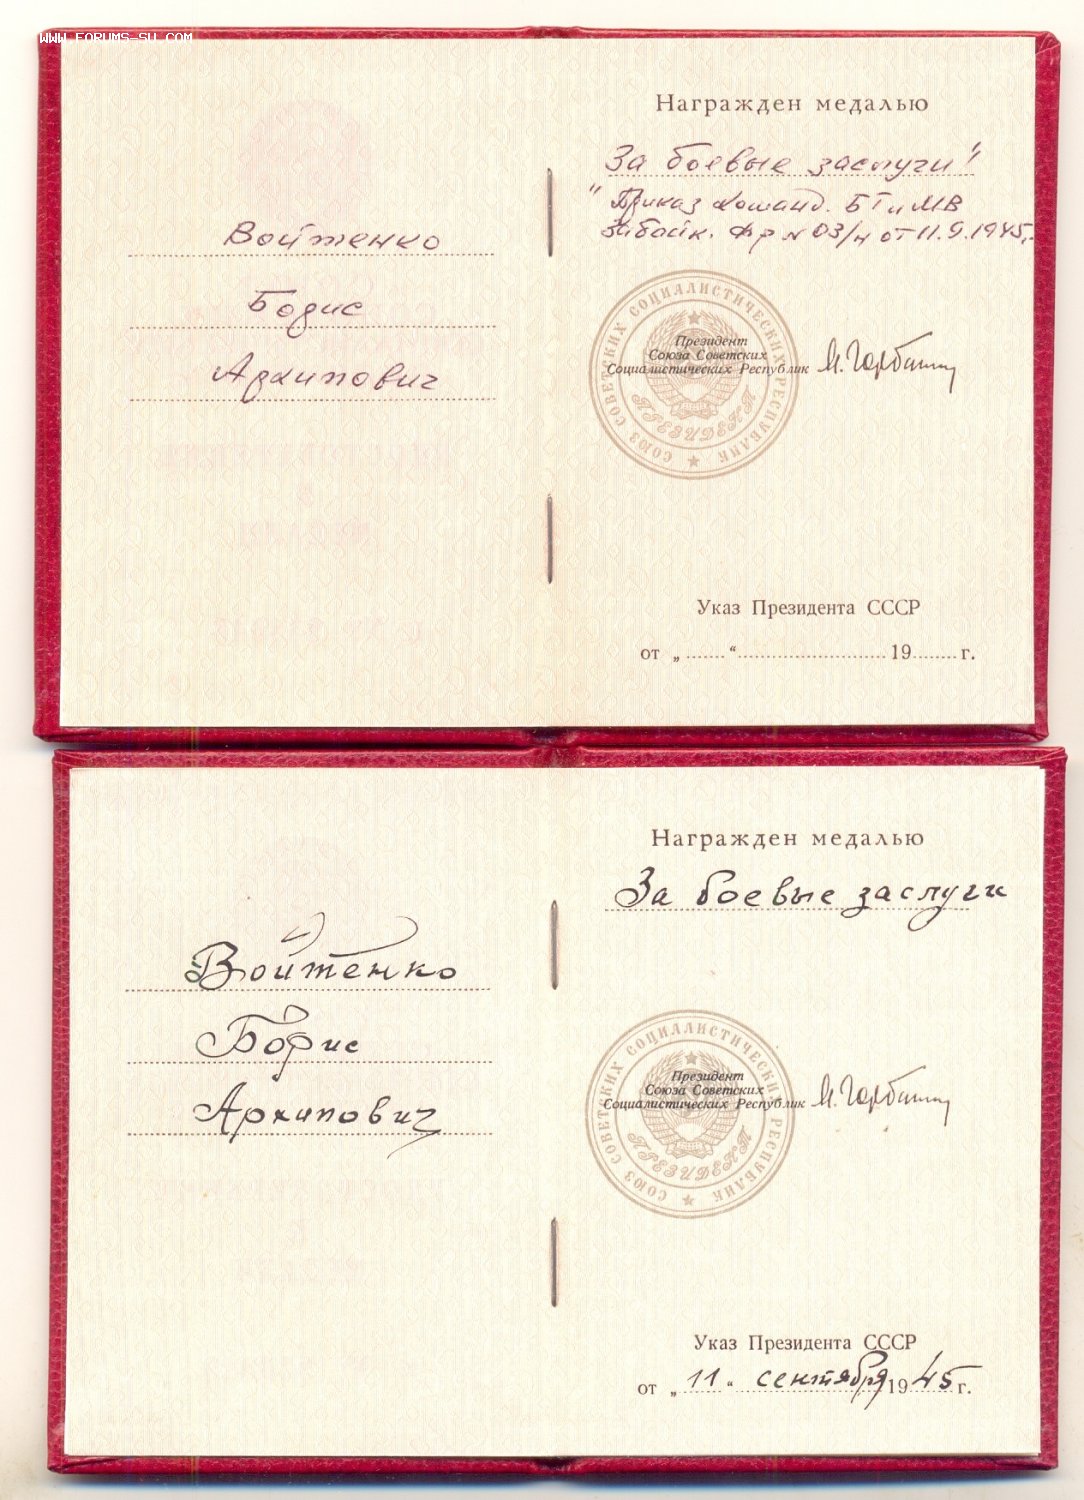 WWW.FORUMS-SU.COM
Войтенко
Борис
Архипович
Награжден медалью
За боевые заслуги"
"Приказ команд. БТиМВ
Забайк. фр №03/н от 11.9.1945г.
СОЮЗ СОВЕТСКИХ СОЦИАЛИСТИЧЕСКИХ РЕСПУБЛИК
ПРЕЗИДЕНТ
Президент
Союза Советских
Социалистических Республик
М. Горбачев
Указ Президента СССР
от „ “ 19 г.
Войтенко
Борис
Архипович
Награжден медалью
За боевые заслуги
СОЮЗ СОВЕТСКИХ СОЦИАЛИСТИЧЕСКИХ РЕСПУБЛИК
ПРЕЗИДЕНТ
Президент
Союза Советских
Социалистических Республик
М. Горбачев
Указ Президента СССР
от „ 11 “ сентября 1945 г.